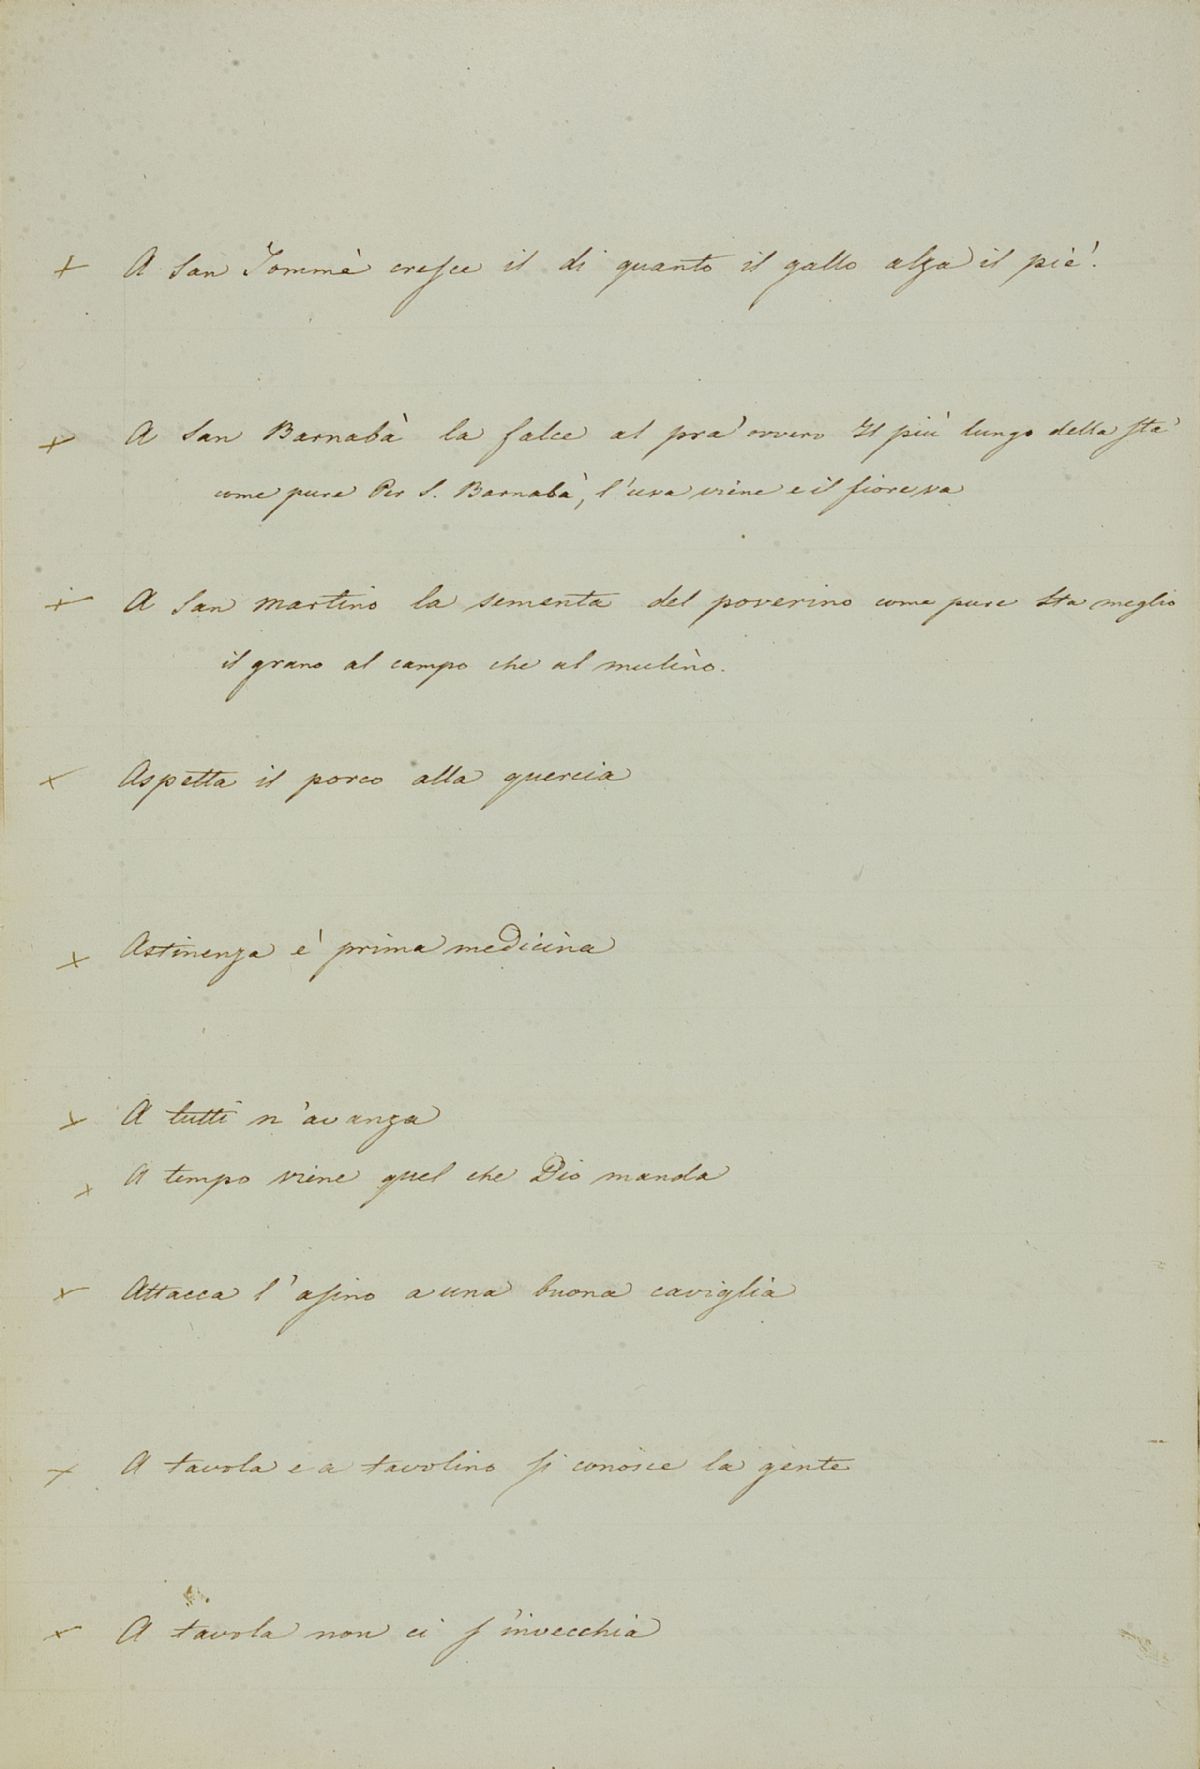 + A San Tommè cresce il di quanto il gallo alza il piè.
+ A San Barnabà la falce al pra' ovvero Il più lungo della sta'
come pure Per S. Barnabà, l'uva viene e il fiore va
+ A San Martino la sementa del poverino come pure Sta meglio
il grano al campo che al mulino.
+ Aspetta il porco alla quercia
+ Astinenza è prima medicina
+ A tutti n'avanza
+ A tempo viene quel che Dio manda
+ Attacca l'asino a una buona caviglia
+ A tavola e a tavolino si conosce la gente
+ A tavola non ci s'invecchia